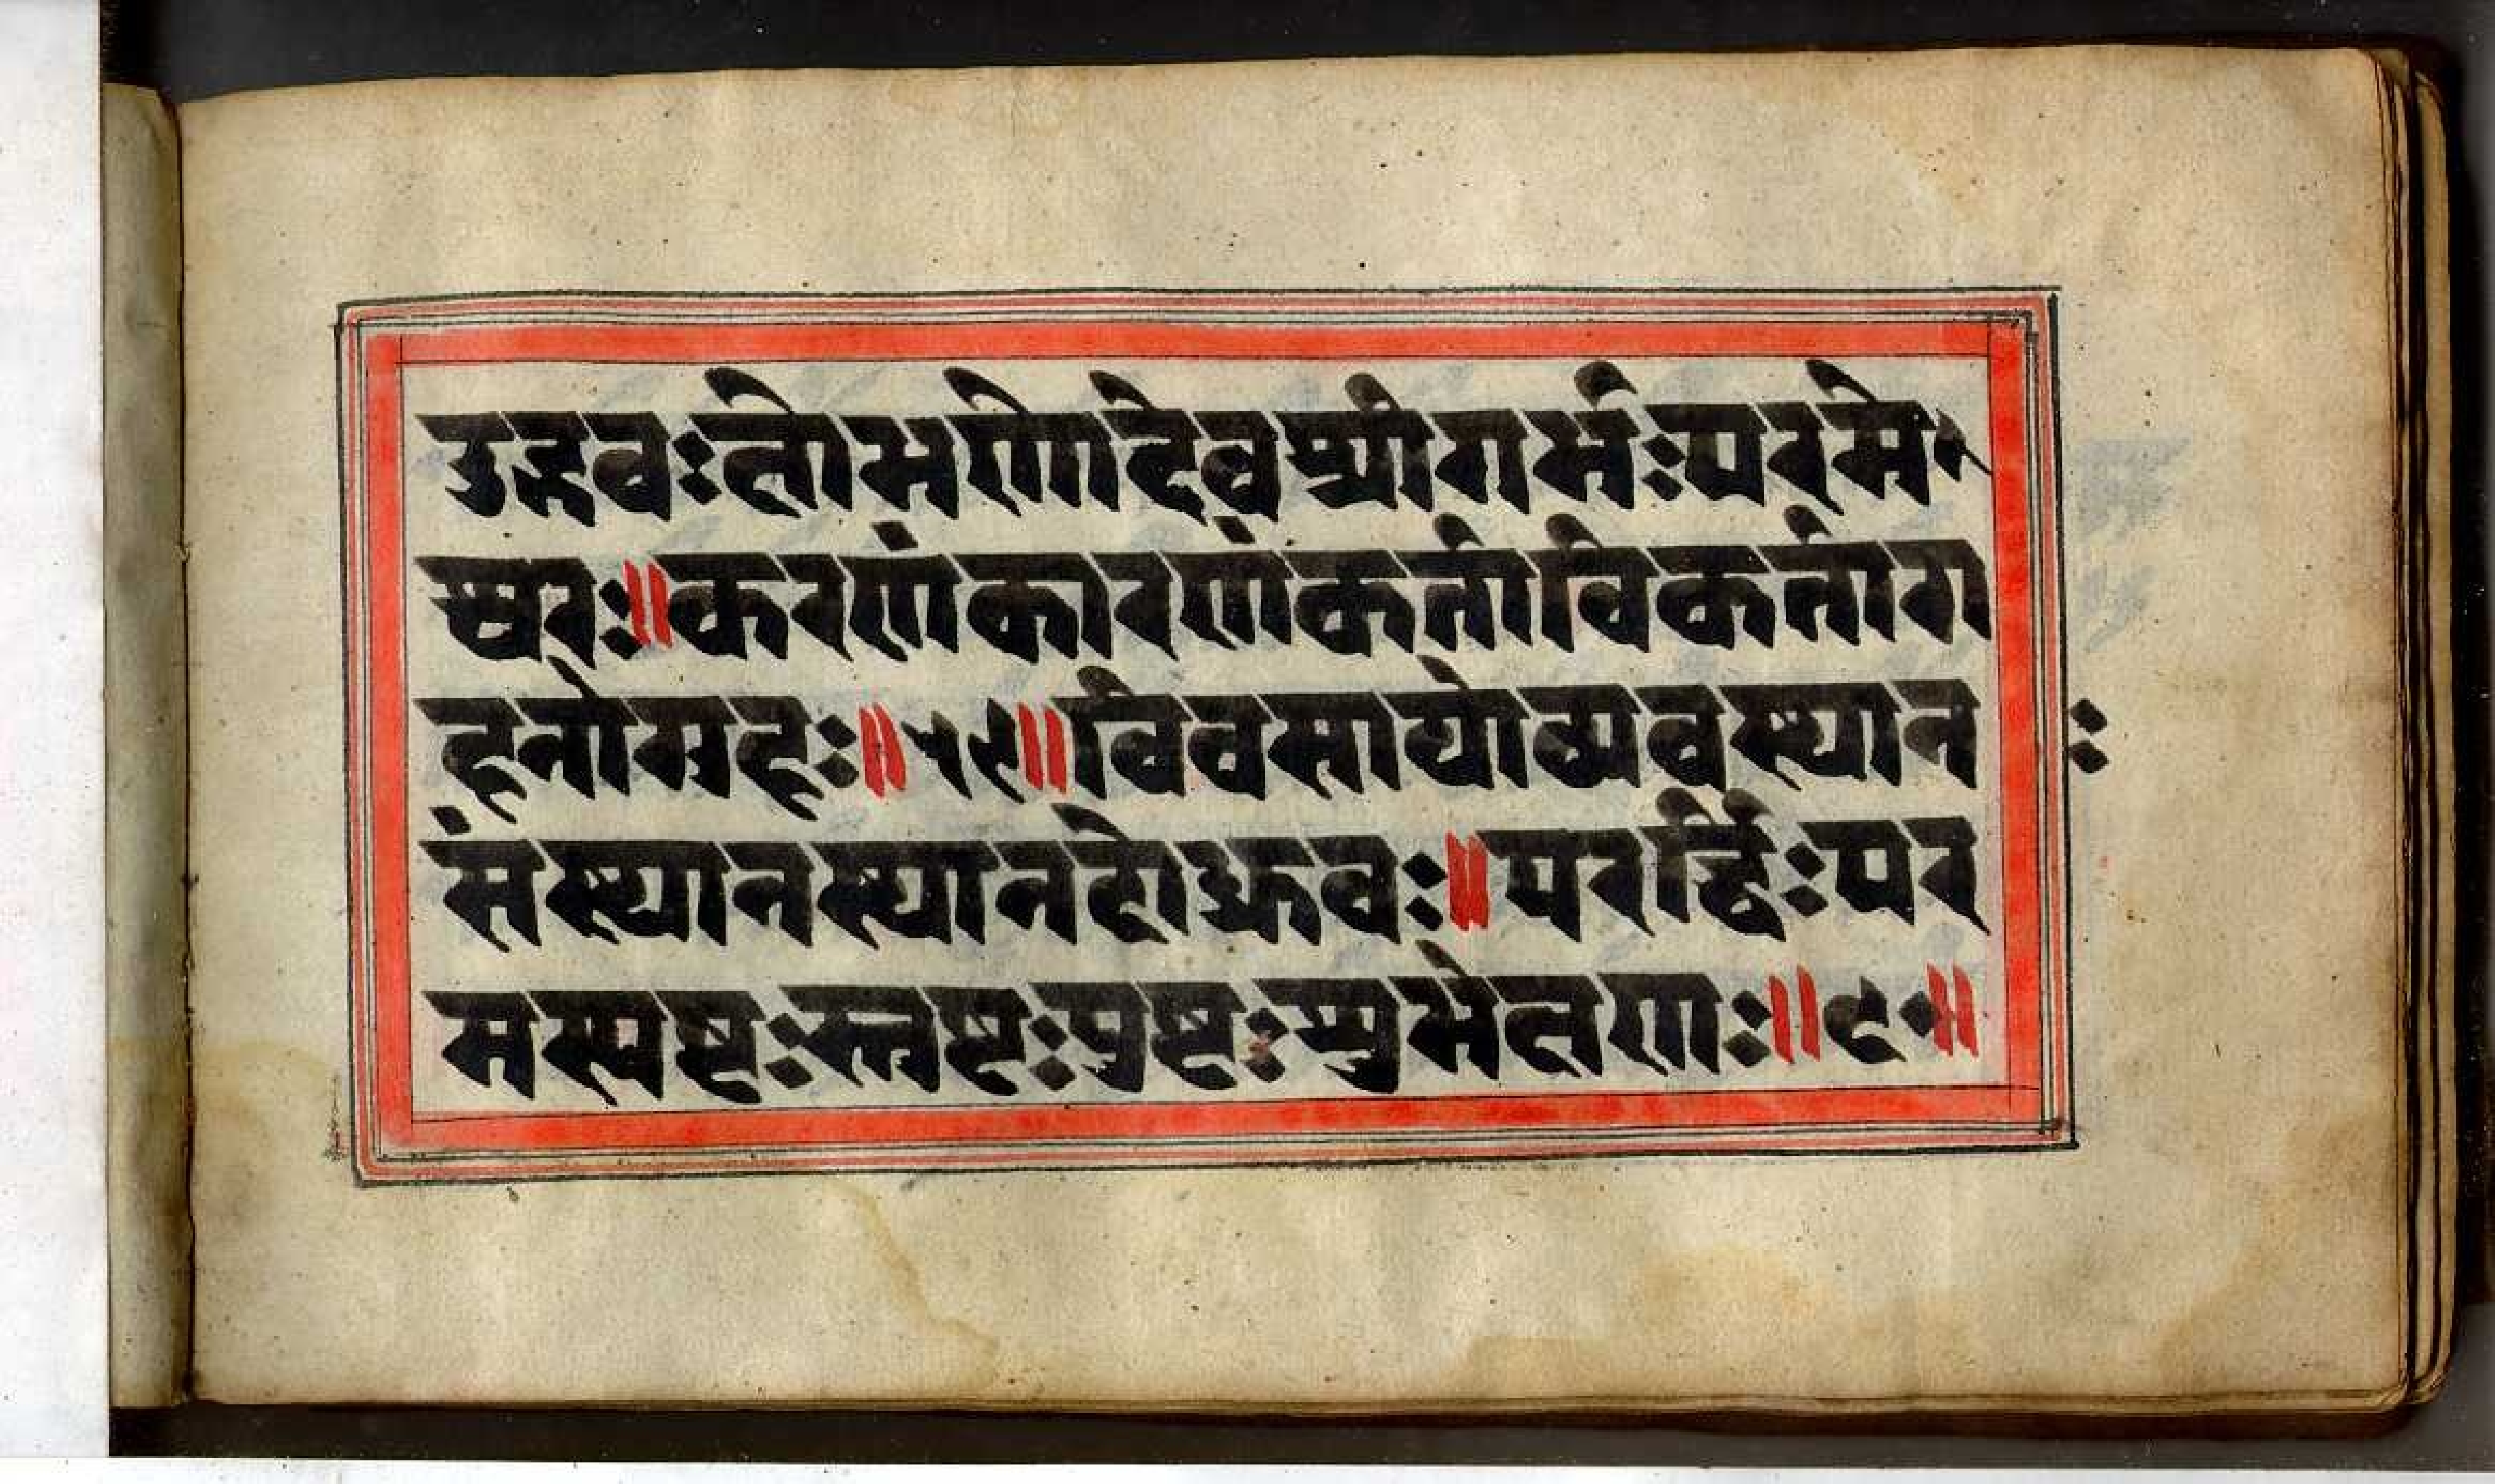 उद्भवःक्षोभणोदेवश्रीगर्भःपरमे
श्वरः॥करणंकारणंकर्ताविकर्ताग
हनोगुहः॥५९॥विवसायोव्यवस्थान
संस्थानस्थानदोध्रुवः॥परर्द्धिःपर
मस्पष्टःस्तुष्टःपुष्टःशुभेक्षणः॥६०॥